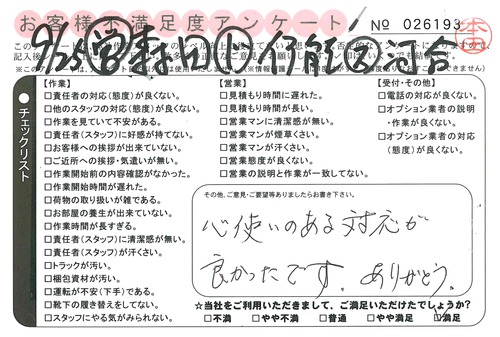 お客様不満足度アンケート
№ 026193
チェックリスト
【作業】
□責任者の対応(態度)が良くない。
□他のスタッフの対応(態度)が良くない。
□作業を見ていて不安がある。
□責任者(スタッフ)に好感が持てない。
□お客様への挨拶が出来ていない。
□ご近所への挨拶・気遣いが無い。
□作業開始前の内容確認がなかった。
□作業開始時間が遅れた。
□荷物の取り扱いが雑である。
□お部屋の養生が出来ていない。
□作業時間が長すぎる。
□責任者(スタッフ)に清潔感が無い。
□責任者(スタッフ)が汗くさい。
□トラックが汚い。
□梱包資材が汚い。
□運転が不安(下手)である。
□靴下の履き替えをしてない。
□スタッフにやる気がみられない。
【営業】
□見積もり時間に遅れた。
□見積もり時間が長い。
□営業マンに清潔感が無い。
□営業マンが煙草くさい。
□営業マンが汗くさい。
□営業態度が良くない。
□営業の説明と作業が一致してない。
【受付・その他】
□電話の対応が良くない。
□オプション業者の説明
・作業が良くない。
□オプション業者の対応
(態度)が良くない。
その他、ご意見・ご要望等ありましたらお書き下さい。
心使いのある対応が
良かったです。ありがとう。
☆当社をご利用いただきまして、ご満足いただけたでしょうか?
□不満 □やや不満 □普通 □やや満足 □満足